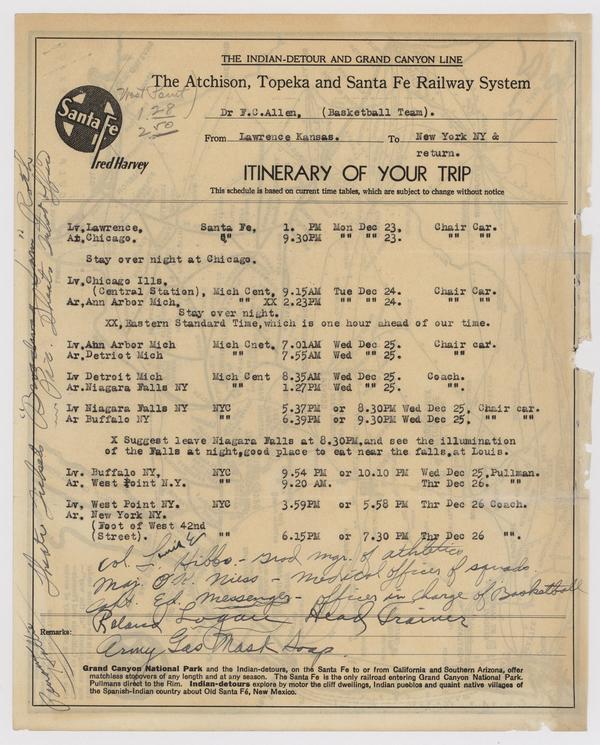 THE INDIAN-DETOUR AND GRAND CANYON LINE
The Atchison, Topeka and Santa Fe Railway System
West Point
1.28
2.50
Santa Fe
Fred Harvey
Dr F.C.Allen, (Basketball Team).
From Lawrence Kansas. To New York NY &
return.
ITINERARY OF YOUR TRIP
This schedule is based on current time tables, which are subject to change without notice
Lv.Lawrence, Santa Fe, 1. PM Mon Dec 23, Chair Car.
At.Chicago. "" 9.30PM "" "" 23. "" ""
Stay over night at Chicago.
Lv.Chicago Ills.
(Central Station), Mich Cent, 9.15AM Tue Dec 24. Chair Car.
Ar,Ann Arbor Mich, "" XX 2.23PM "" "" 24. "" "".
Stay over night.
XX,Eastern Standard Time,which is one hour ahead of our time.
Lv.Ann Arbor Mich Mich Cnet. 7.01AM Wed Dec 25. Chair car.
Ar.Detriot Mich "" 7.55AM Wed "" 25. "" ""
Lv Detroit Mich Mich Cent 8.35AM Wed Dec 25. Coach.
Ar.Niagara Falls NY "" 1.27PM Wed "" 25. "".
Lv Niagara Falls NY NYC 5.37PM or 8.30PM Wed Dec 25, Chair car.
Ar Buffalo NY "" 6.39PM or 9.30PM Wed Dec 25. "" ""
X Suggest leave Niagara Falls at 8.30PM,and see the illumination
of the Falls at night,good place to eat near the falls,at Louis.
Lv. Buffalo NY, NYC 9.54 PM or 10.10 PM Wed Dec 25,Pullman.
Ar. West Point N.Y. "" 9.20 AM. Thr Dec 26. "" ""
Lv, West Point NY. NYC 3.59PM or 5.58 PM Thr Dec 26 Coach.
Ar. New York NY.
(Foot of West 42nd
(Street). "" 6.15PM or 7.30 PM Thr Dec 26 "".
Col. L. Hibbs - Grad mgr. of athletics
Maj. - medical officer of squads.
Capt. Ed. Messenger - officer in charge of Basketball
Roland Logan Head Trainer
Remarks:
Army Gas Mask Soap
Grand Canyon National Park and the Indian-detours, on the Santa Fe to or from California and Southern Arizona, offer
matchless stopovers of any length and at any season. The Santa Fe is the only railroad entering Grand Canyon National Park.
Pullmans direct to the Rim. Indian-detours explore by motor the cliff dwellings, Indian pueblos and quaint native villages of
the Spanish-Indian country about Old Santa Fé, New Mexico.